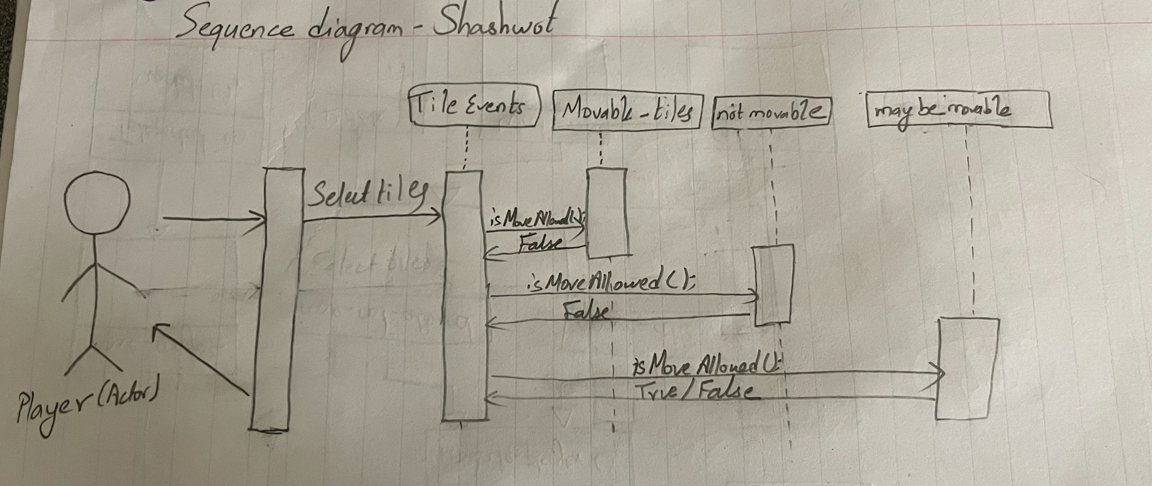 Sequence diagram - Shashwot
Tile Events
Movable-tiles
not movable
may be movable
Select tiles
isMoveAllowed();
False
isMoveAllowed();
False
isMoveAllowed();
True/False
Player(Actor)